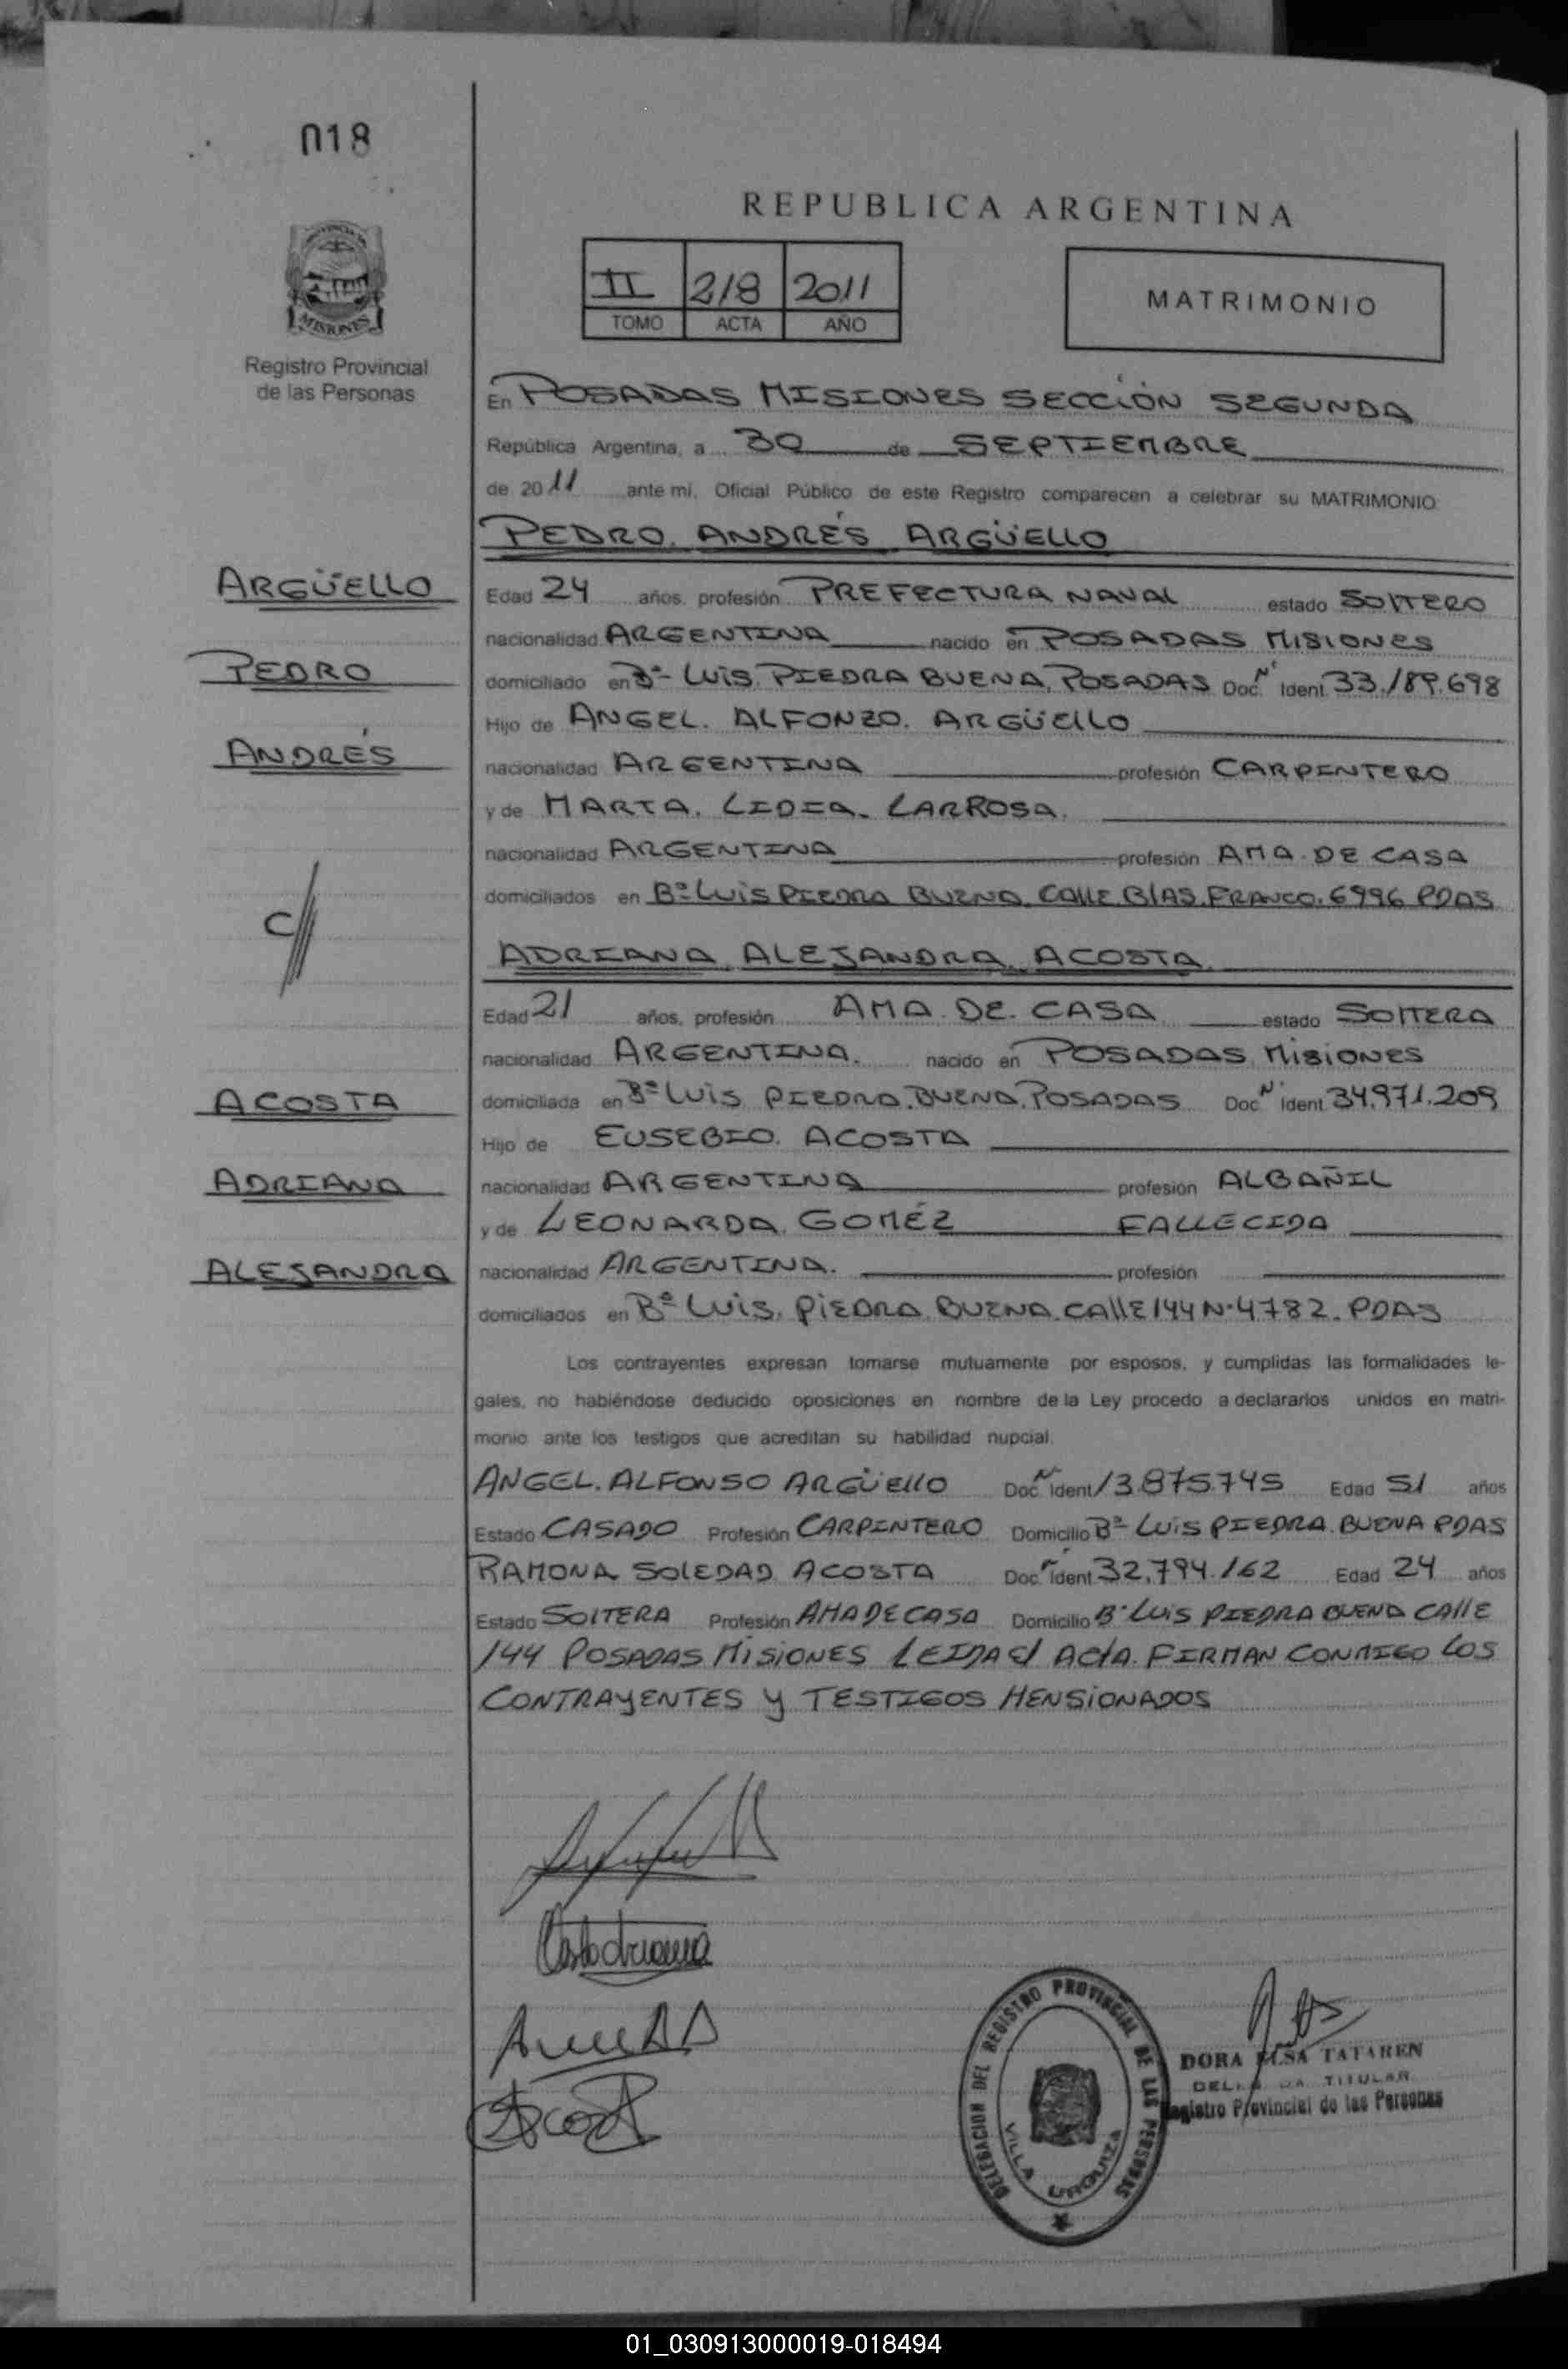 018
REPUBLICA ARGENTINA
II 218 2011
TOMO ACTA AÑO
MATRIMONIO
MISIONES
Registro Provincial
de las Personas
En POSADAS MISIONES SECCIÓN SEGUNDA
República Argentina, a 30 de SEPTIEMBRE
de 2011 ante mí, Oficial Público de este Registro comparecen a celebrar su MATRIMONIO:
PEDRO. ANDRÉS ARGÜELLO
ARGÜELLO
Edad 24 años, profesión PREFECTURA NAVAL estado SOLTERO
nacionalidad ARGENTINA nacido en POSADAS MISIONES
PEDRO
domiciliado en Bº LUIS. PIEDRA BUENA. POSADAS Doc. Nº Ident 33.189.698
Hijo de ANGEL. ALFONZO. ARGÜELLO
ANDRÉS
nacionalidad ARGENTINA profesión CARPINTERO
y de MARTA. LIDIA. LARROSA.
nacionalidad ARGENTINA profesión AMA. DE CASA
domiciliados en Bº LUIS PIEDRA BUENA CALLE BLAS. FRANCO. 6996 PDAS
C//
ADRIANA. ALEJANDRA. ACOSTA.
Edad 21 años, profesión AMA. DE. CASA estado SOLTERA
nacionalidad ARGENTINA. nacido en POSADAS. MISIONES
ACOSTA
domiciliada en Bº LUIS PIEDRA. BUENA. POSADAS Doc. Nº Ident 34.971.209
Hijo de EUSEBIO. ACOSTA
ADRIANA
nacionalidad ARGENTINA profesión ALBAÑIL
y de LEONARDA. GOMÉZ FALLECIDA
ALEJANDRA
nacionalidad ARGENTINA. profesión
domiciliados en Bº LUIS. PIEDRA. BUENA. CALLE 144 Nº 4782. PDAS
Los contrayentes expresan tomarse mutuamente por esposos, y cumplidas las formalidades le-
gales, no habiéndose deducido oposiciones en nombre de la Ley procedo a declararlos unidos en matri-
monio ante los testigos que acreditan su habilidad nupcial.
ANGEL. ALFONSO ARGÜELLO Doc. Nº Ident 13.875.745 Edad 51 años
Estado CASADO Profesión CARPINTERO Domicilio Bº LUIS PIEDRA. BUENA PDAS
RAMONA SOLEDAD ACOSTA Doc. Nº Ident 32.794.162 Edad 24 años
Estado SOLTERA Profesión AMA DE CASA Domicilio Bº LUIS PIEDRA BUENA CALLE
144 POSADAS MISIONES LEIDA el ACTA. FIRMAN CONMIGO LOS
CONTRAYENTES Y TESTIGOS MENSIONADOS
DELEGACION DEL REGISTRO PROVINCIAL DE LAS PERSONAS
VILLA URQUIZA
DORA ELSA TATAREN
DELEGADA TITULAR
Registro Provincial de las Personas
01_030913000019-018494